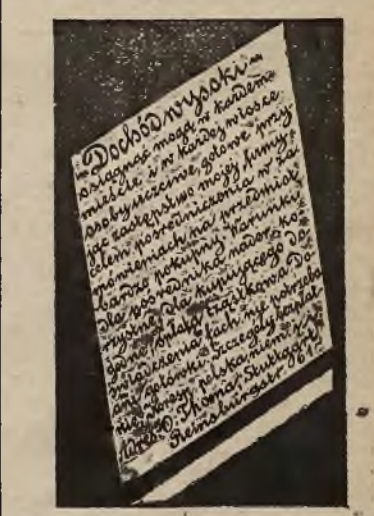 Dochód wysoki
osiągnąć mogą w każdem
mieście i w każdej wiosce
osoby uczciwe, gotowe przy
jąć zastępstwo mojej firmy,
celem pośredniczenia w za
mówieniach na przedmiot
bardzo pokupny. Warunki
dla pośrednika nader ko
rzystne, dla kupującego do
godne spłaty Do
świadczenia fach. nie potrzeba
ani gotówki. Szczegóły bezpłat
nie. Koresp. polska i niem.
Adres: O. Thoma, Stuttgart
Reinsburgstr.